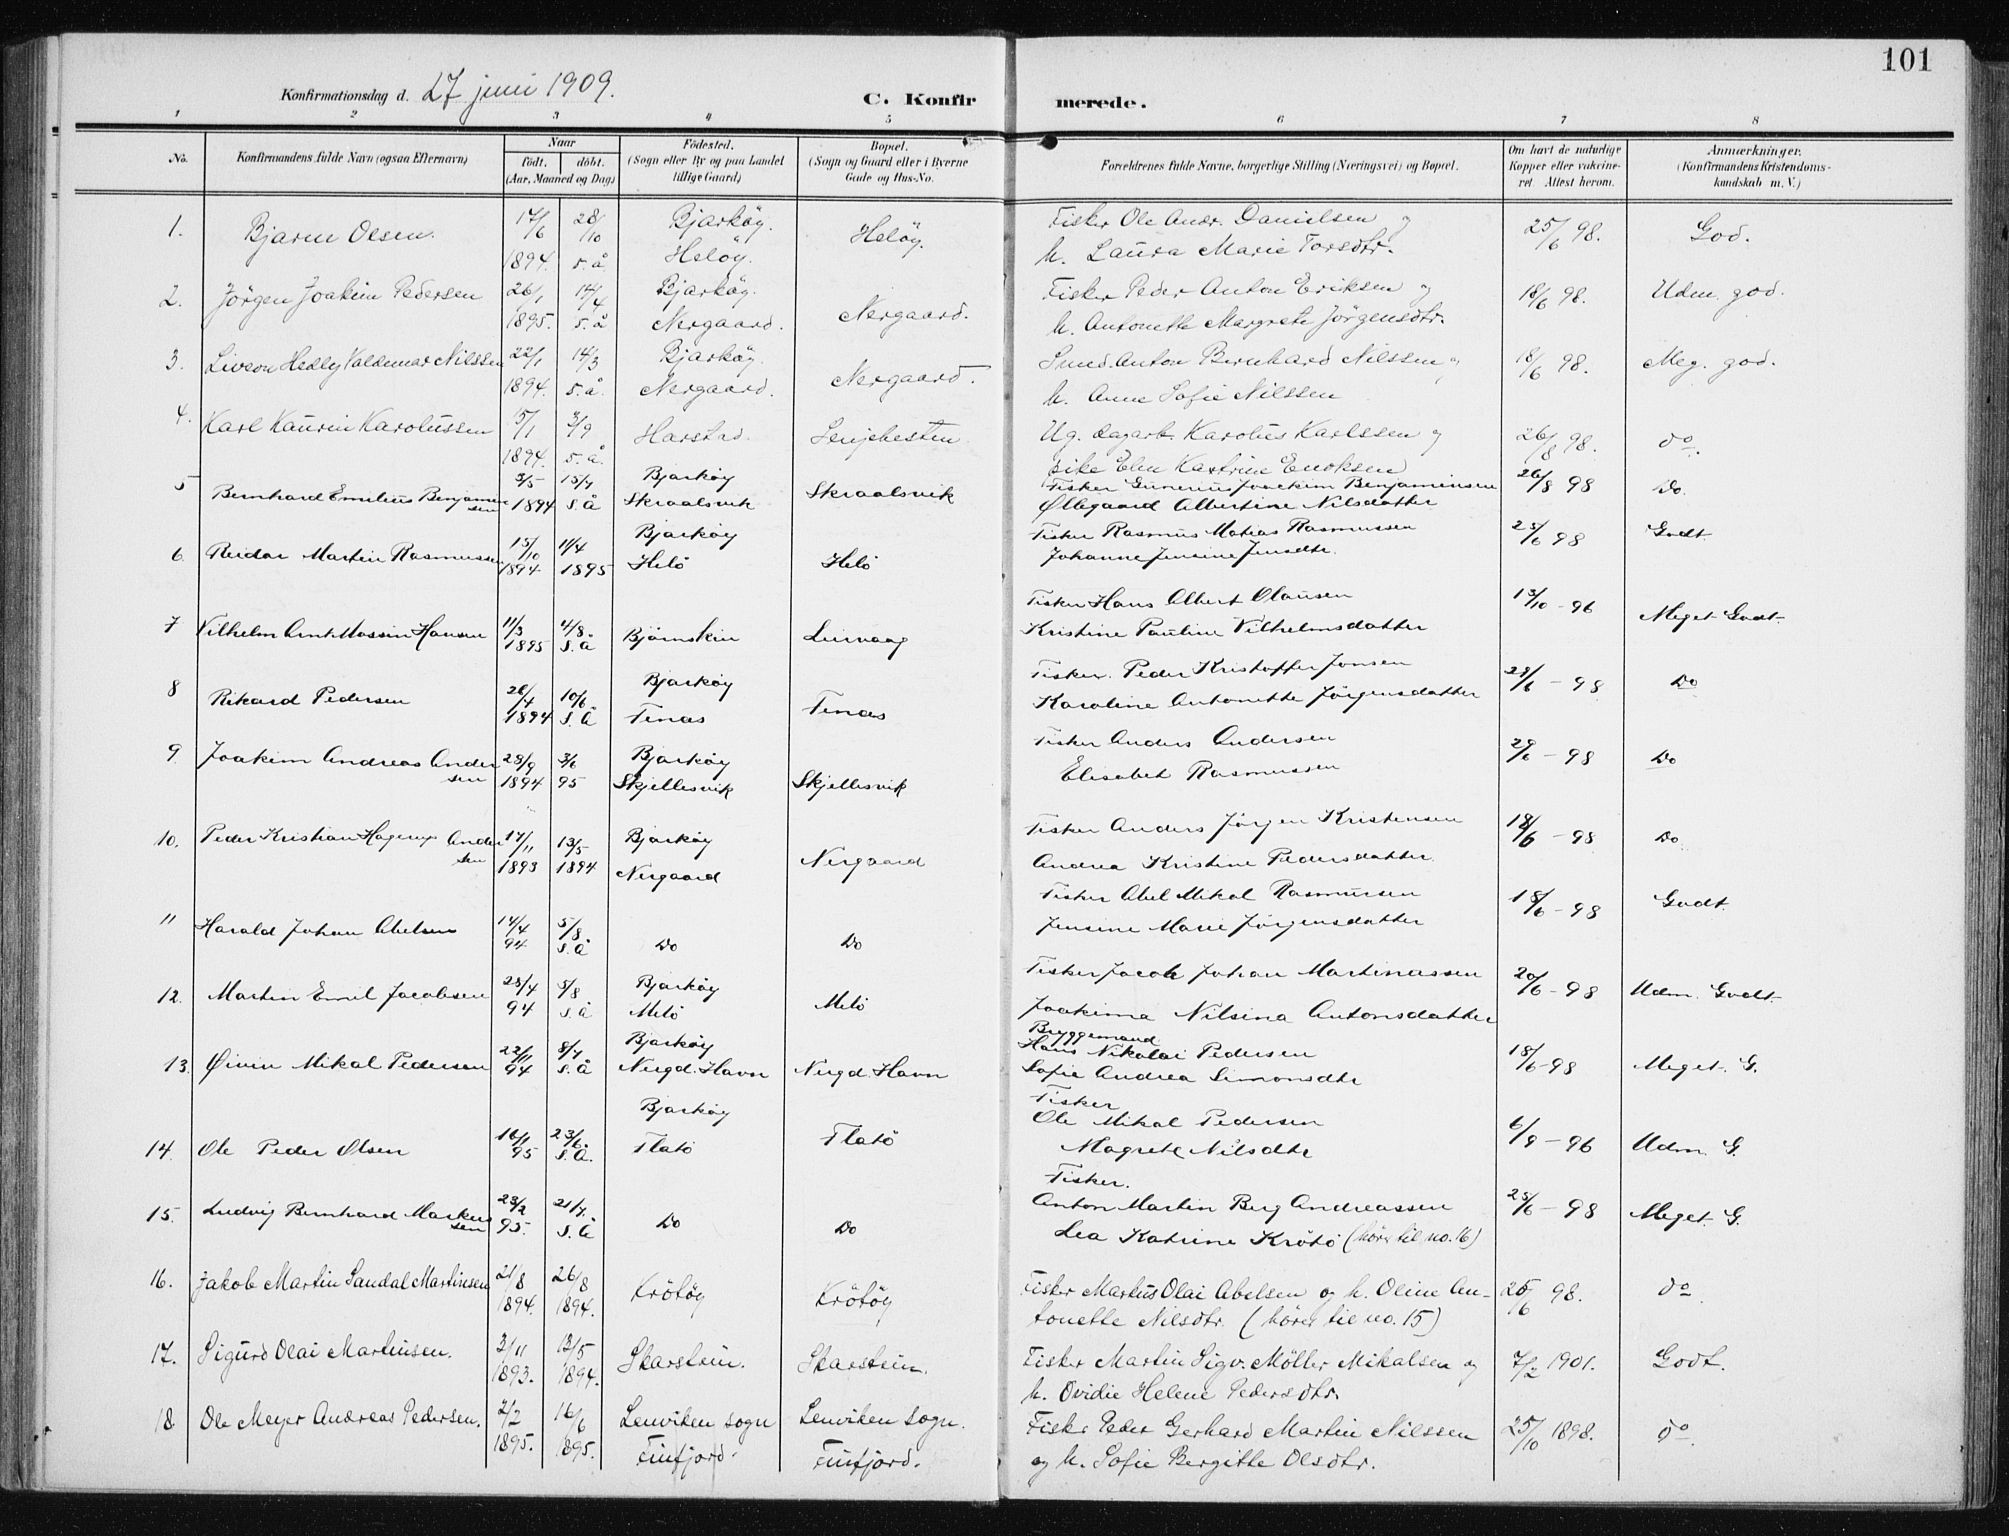 101
Konfirmationsdag d. 27 juni 1909.
C. Konfirmerede.
1 2 3 4 5 6 7 8
No. Konfirmandens fulde Navn (ogsaa Efternavn) Naar født. døbt. (Aar, Maaned og Dag) Fødested. (Sogn eller By og paa Landet tillige Gaard) Bopæl. (Sogn og Gaard eller i Byerne Gade og Hus-No. Forældrenes fulde Navne, borgerlige Stilling (Næringsvei) og Bopæl. Om havt de naturlige Kopper eller vakcineret. Attest herom. Anmærkninger. (Konfirmandens Kristendomskundskab m. V.)
1. Bjarne Olsen. 17/6 1894. 28/10 s. å. Bjarköy. Helöy. Helöy. Fisker Ole Andr. Danielsen og h. Laura Marie Torsdtr. 25/6 98. God.
2. Jörgen Joakim Pedersen 26/1 1895. 14/4 s. å Bjarköy. Nergaard. Nergaard. Fisker Peder Anton Eriksen og h. Antonette Margrete Jörgensdtr. 18/6 98. Udm. god.
3. Hedley Valdemar Nilssen 22/1 1894. 14/3 s. å. Bjarköy. Nergaard. Nergaard. Smed Anton Bernhard Nilssen og h. Anne Sofie Nilssen 18/6 98. Meg. god.
4. Karl Kaurin Karolussen 15/1 1894. 3/9 s. å. Harstad. Senjehesten Ug. dagarb. Karolus Karlssen og pike Elen Katrine Enoksen 26/8 98. do.
5 Bernhard Emelius Benjaminsen 3/5 1894 15/7 s. Å Bjarköy Skraalsvik Skraalsvik Fisker Gunerius Joackim Benjaminsen Øllegaard Albertine Nilsdatter 26/8 98 Do.
6. Reidar Martin Rasmussen 15/10 1894 11/4 1895 Bjarköy Helö Helö Fisker Rasmus Matias Rasmussen Johanne Jensine Jensdtr. 25/6 98 Godt
7 Vilhelm Arnt Hansen 11/3 1895 4/8. s. å Leirvaag Fisker Hans Albert Olausen Kristine Pauline Vilhelmsdatter 13/10 - 96 Meget Godt.
8 Rikard Pedersen 26/4 1894 10/6 s. å Bjarköy Tenæs Tenæs Fisker. Peder Kristoffer Jonsen Karoline Antonette Jörgensdatter 28/6 - 98 Do
9. Joakim Andreas Andersen 28/9 1894 3/6 95 Bjarköy Skjellesvik Skjellesvik Fisker Anders Andersen Elisabet Rasmussen 29/6 - 98 Do
10. Peder Kristian Hagerup Andersen 17/11 1893 13/5 1894 Bjarköy Nergaard Nergaard Fisker Anders Jörgen Kristensen Andrea Kristine Pedersdatter 18/6 - 98 Do.
11 Harald Johan Abelsen 14/4 94 5/8 s. å Do Do Fisker Abel Mikal Rasmussen Jensine Marie Jörgensdatter 18/6 - 98 Godt.
12. Martin Emil Jacobsen 28/4 94 5/8 s. å Bjarköy Melö Melö Fisker Jacob Johan Martinussen Joakima Nilsina Antonsdatter 20/6 - 98 Udm. Godt
13. Øivin Mikal Pedersen 22/11 94 8/7 s. å Bjarköy Nergd. Havn Nergd. Havn Bryggemand Hans Nikolai Pedersen Sofie Andrea Simonsdtr 18/6 - 98 Meget. G.
14. Ole Peder Olsen 16/11 95 23/6. s. Å. Bjarköy Flatö Flatö Fisker Ole Mikal Pedersen Magrete Nilsdtr 6/9 - 96 Udm. G.
15. Ludvig Bernhard Markussen 23/2 95. 21/7. s. Å Do Do Fisker. Anton Martin Berg Andreassen Lea Katrine Krötö (hörer til no. 16) 25/6 - 98 Meget. G.
16. Jakob Martin Sandal Martinsen 21/8 1894. 26/8 1894. Krötöy Krötöy Fisker Markus Olai Abelsen og h. Oline Antonette Nilsdtr. (hörer til no. 15) 25/6 98. do
17. Sigurd Olai Martinsen. 3/11 1893. 13/5 1894. Skarstein. Skarstein. Fisker Martin Sigv. Möller Mikalsen og h. Ovidie Helene Pedersdtr. 7/2 1901. Godt.
18. Ole Meyer Andreas Pedersen. 2/2 1895. 16/6 1895. Lenviken sogn Finfjord. Lenviken sogn. Finfjord. Fisker Peder Gerhard Martin Nilssen og h. Sofie Bergitte Olsdtr. 25/10 1898. do.